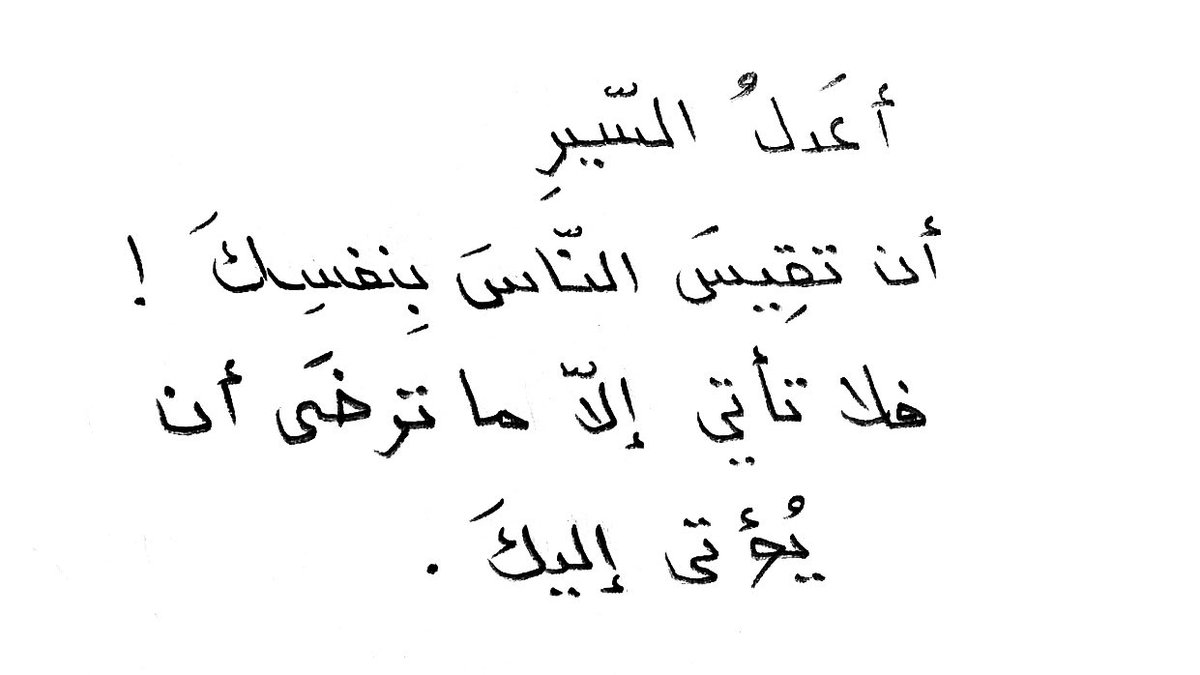 أعَدلُ السّيرِ
أن تقِيسَ النّاسَ بِنفسِكَ !
فلا تأتي إلاّ ما ترضَى أن
يُؤتى إليكَ .